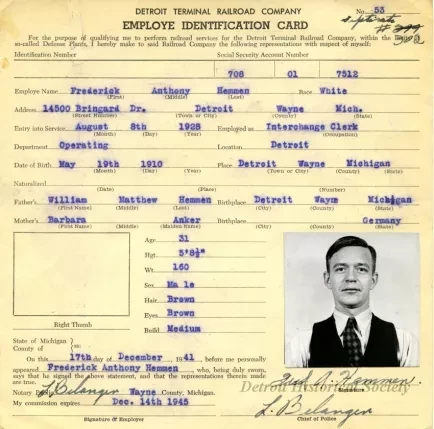 DETROIT TERMINAL RAILROAD COMPANY
EMPLOYE IDENTIFICATION CARD
No. 53
For the purpose of qualifying me to perform railroad services for the Detroit Terminal Railroad Company, within the
so-called Defense Plants, I hereby make to said Railroad Company the following representations with respect of myself:
Identification Number Social Security Account Number
708 01 7512
Employe Name Frederick Anthony Hemmen Race White
(First) (Middle) (Last)
Address 14500 Bringard Dr. Detroit Wayne Mich.
(Street Number) (Town or City) (County) (State)
Entry into Service August 8th 1928 Employed as Interchange Clerk
(Month) (Day) (Year) (Occupation)
Department Operating Location Detroit
Date of Birth May 19th 1910 Place Detroit Wayne Michigan
(Month) (Day) (Year) (Town or City) (County) (State)
Naturalized
(Date) (Place) (Number)
Father's William Matthew Hemmen Birthplace Detroit Wayne Michigan
(First Name) (Middle) (Last) (City) (County) (State)
Mother's Barbara Anker Birthplace Germany
(First Name) (Middle) (Maiden Name) (City) (County) (State)
Age 31
Hgt. 5'8½"
Wt. 160
Sex Male
Hair Brown
Eyes Brown
Build Medium
Right Thumb
State of Michigan
County of
On this 17th day of December, 1941, before me personally
appeared Frederick Anthony Hemmen who, being duly sworn,
says that he signed the above statement, and that the representations therein made
are true.
Fred A. Hemmen
Detroit Historical Society
Notary L. Belanger Wayne County, Michigan.
My commission expires Dec. 14th 1945
L. Belanger
Signature of Employe Chief of Police